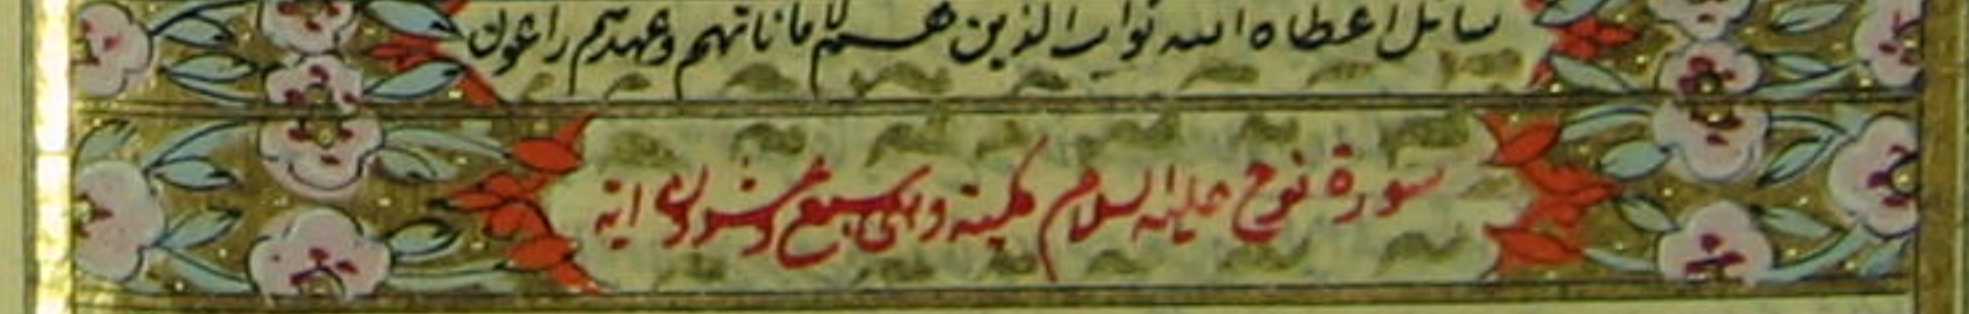 سائل اعطاه الله ثواب الذين هم لاماناتهم وعهدهم راعون
سورة نوح عليه السلام مكية وهي سبع وعشرون اية